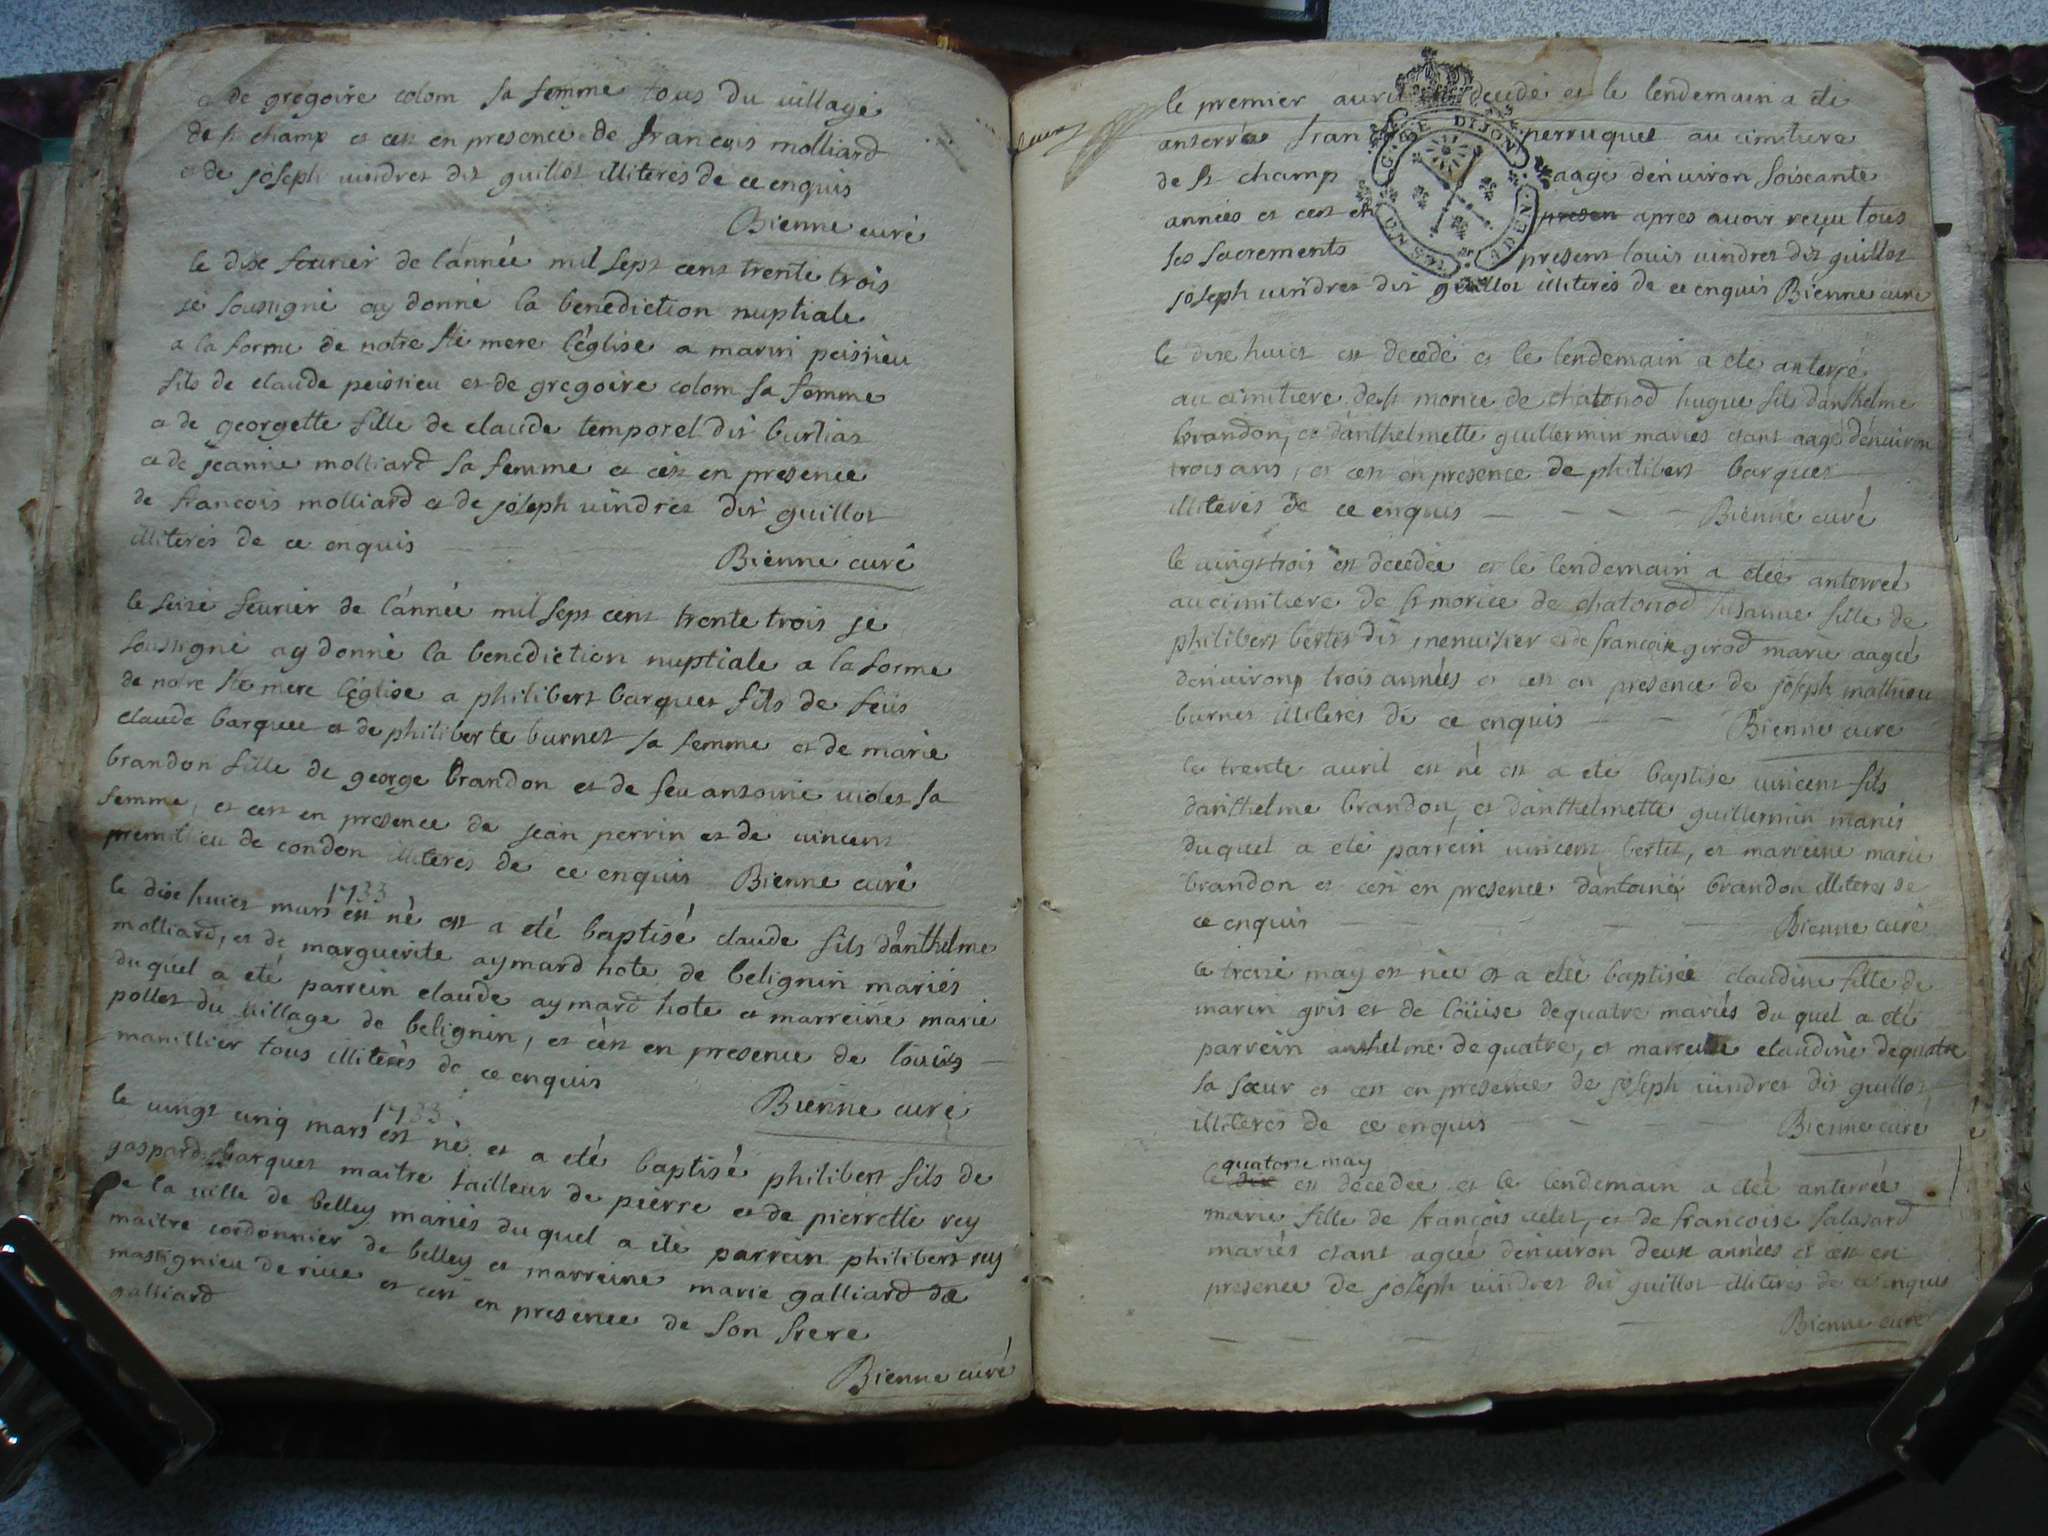 a de gregoire colom sa femme tous du village
de st champ et cest en presence de francois molliard
et de joseph vindret dit guillot illiteres de ce enquis
Bienne curé
le dixe fevrier de lánnée mil sept cent trente trois
je soussigné ay donné la benediction nuptiale
a la forme de notre ste mere léglise a marin peissieu
fils de claude peissieu et de gregoire colom sa femme
a de georgette fille de claude temporel dit burliat
a de jeanne molliard sa femme et cést en presence
de francois molliard et de joseph vindret dit guillot
illiterés de ce enquis Bienne curé
le seize fevrier de lánnée mil sept cent trente trois je
soussigné ay donné la benediction nuptiale a la forme
de notre ste mere léglise a philibert barquet fils de feüs
claude barquet et de philiberte burnet sa femme et de marie
brandon fille de george brandon et de feu antoine violet sa
femme, et cest en presence de jean perrin et de vincent
premillieu de condon illiteres de ce enquis Bienne curé
1733
le dixe huict mars est né est a eté baptisé claude fils dánthelme
molliard, et de marguerite aymard hote de belignin mariés
duquel a eté parrein claude aymard hote et marreine marie
pollet du village de belignin, et cést en presence de loüis
manillier tous illiterés de ce enquis
Bienne curé
1733
le vingt cinq mars est né et a eté baptisé philibert fils de
gaspard barquet maitre tailleur de pierre et de pierrette rey
de la ville de belley mariés duquel a eté parrein philibert rey
maitre cordonnier de belley et marreine marie galliard de
massignieu de rive et cest en presence de son frere
galliard
Bienne curé
le premier avril decedé et le lendemain a eté
anterré fran perruquet au cimitiere
de st champ aagé dénuiron soiseante
années et cest en presen apres avoir reçu tous
ses sacrements present louis vindret dit guillot
joseph vindret dit guillot illiterés de ce enquis Bienne curé
G DE DIJON
le dixe huict est decedé et le lendemain a eté anterré
au cimitiere de st morice de chatonod hugue fils dánthelme
brandon, et dánthelmette guillermin mariés etant aagé dénuiron
trois ans, et cest en presence de philibert barquet
illiterés de ce enquis Bienne curé
le vingt trois est decedée et le lendemain a etée anterrée
au cimitiere de st morice de chatonod susanne fille de
philibert bertet dit menuisier et de francoise girod marié aagée
dénuiron trois années et cest en presence de joseph mathieu
burnet illiteres de ce enquis Bienne curé
le trente avril est né est a eté baptise vincent fils
dánthelme brandon, et dánthelmette guillermin mariés
duquel a eté parréin vincent bertet, et marreine marie
brandon et cést en presence dántoiné brandon illiteres de
ce enquis Bienne curé
le treize may est née et a etée baptisée claudine fille de
marin gris et de loüise dequatre mariés du quel a eté
parrein anthelme dequatre, et marreine claudine dequatre
sa sœur et cest en presence de joseph vindret dit guillot
illiterés de ce enquis Bienne curé
quatorze may
le dix est decedee et le lendemain a eteé anterrée
marie fille de françois velet, et de francoise salasard
mariés etant agée dénuiron deux années et cest en
presence de joseph vindret dit guillot illiterés de ce enquis
Bienne curé